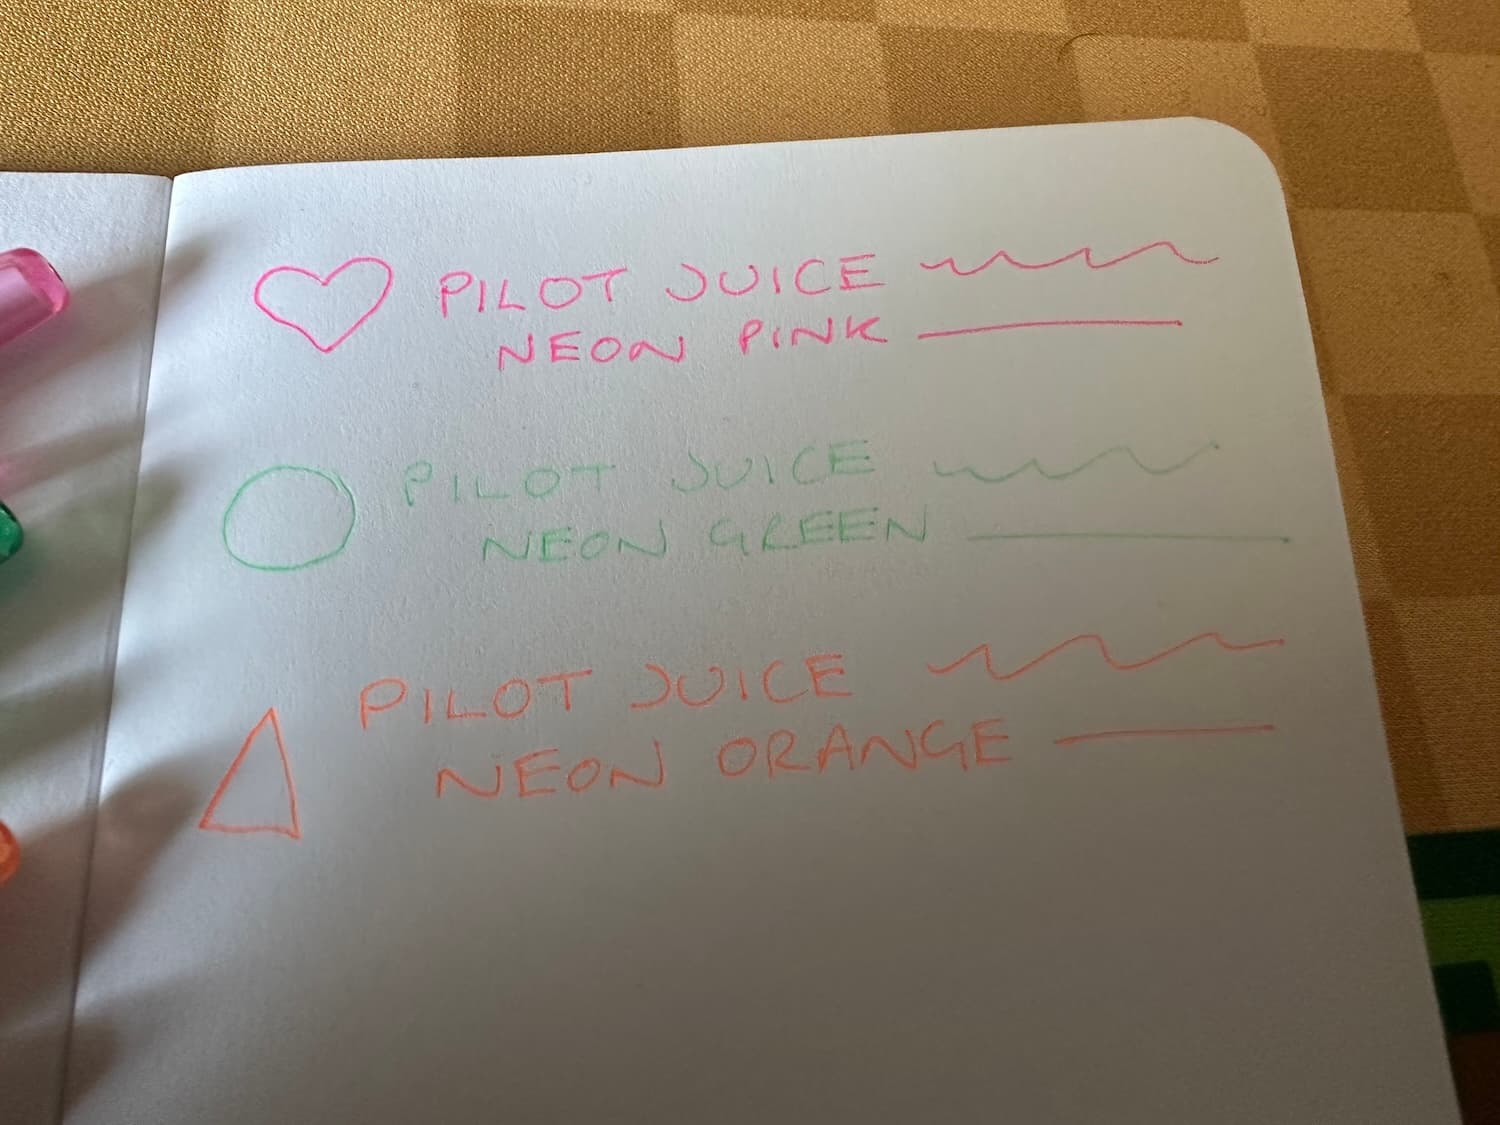 PILOT JUICE
NEON PINK
PILOT JUICE
NEON GREEN
PILOT JUICE
NEON ORANGE